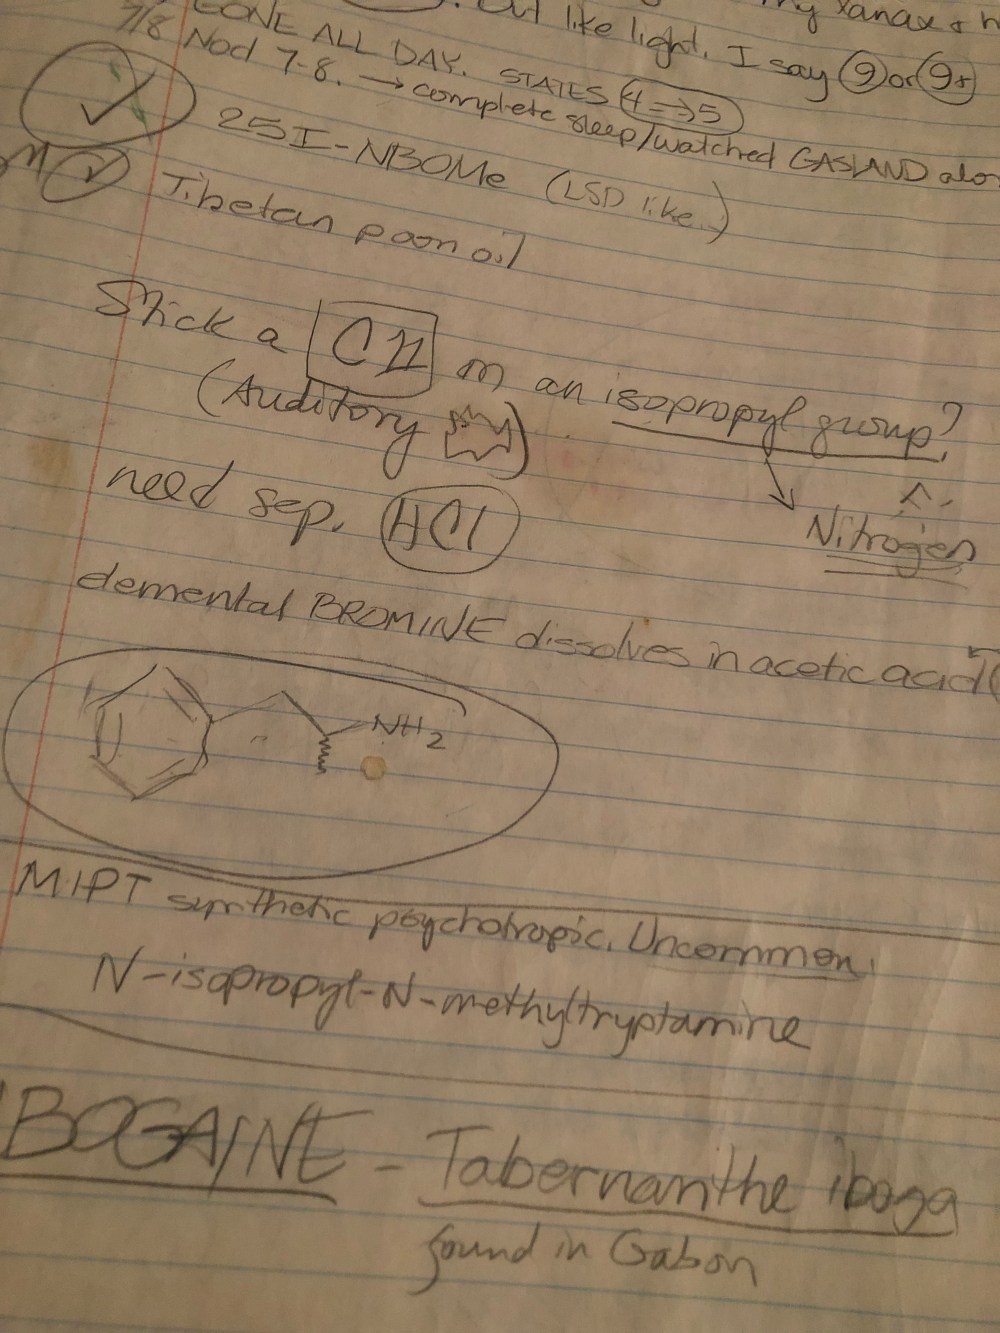 . but like light. my xanax &
I say 9 or 9+
GONE ALL DAY. STATES 4 ⇒ 5
7/8 Nod 7-8. → complete sleep/watched GASLAND alo
25I-NBOMe (LSD like..)
Tibetan poon oil
Stick a CH on an isopropyl group?
(Auditory )
→ Nitrogen
need sep. HCl
elemental BROMINE dissolves in acetic acid
NH2
MIPT synthetic psychotropic. Uncommon.
N-isopropyl-N-methyltryptamine
IBOGAINE - Tabernanthe iboga
found in Gabon